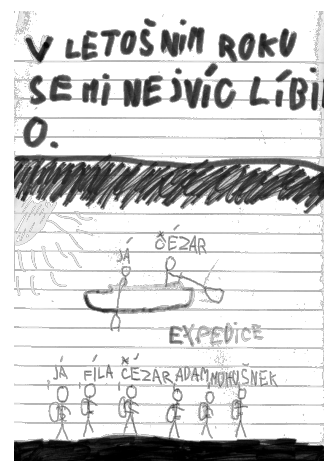 V LETOŠNÍM ROKU
SE MI NEJVÍC LÍBI
O.
JÁ ČÉZAR
EXPEDICE
JÁ FÍLA ČÉZAR ADAM